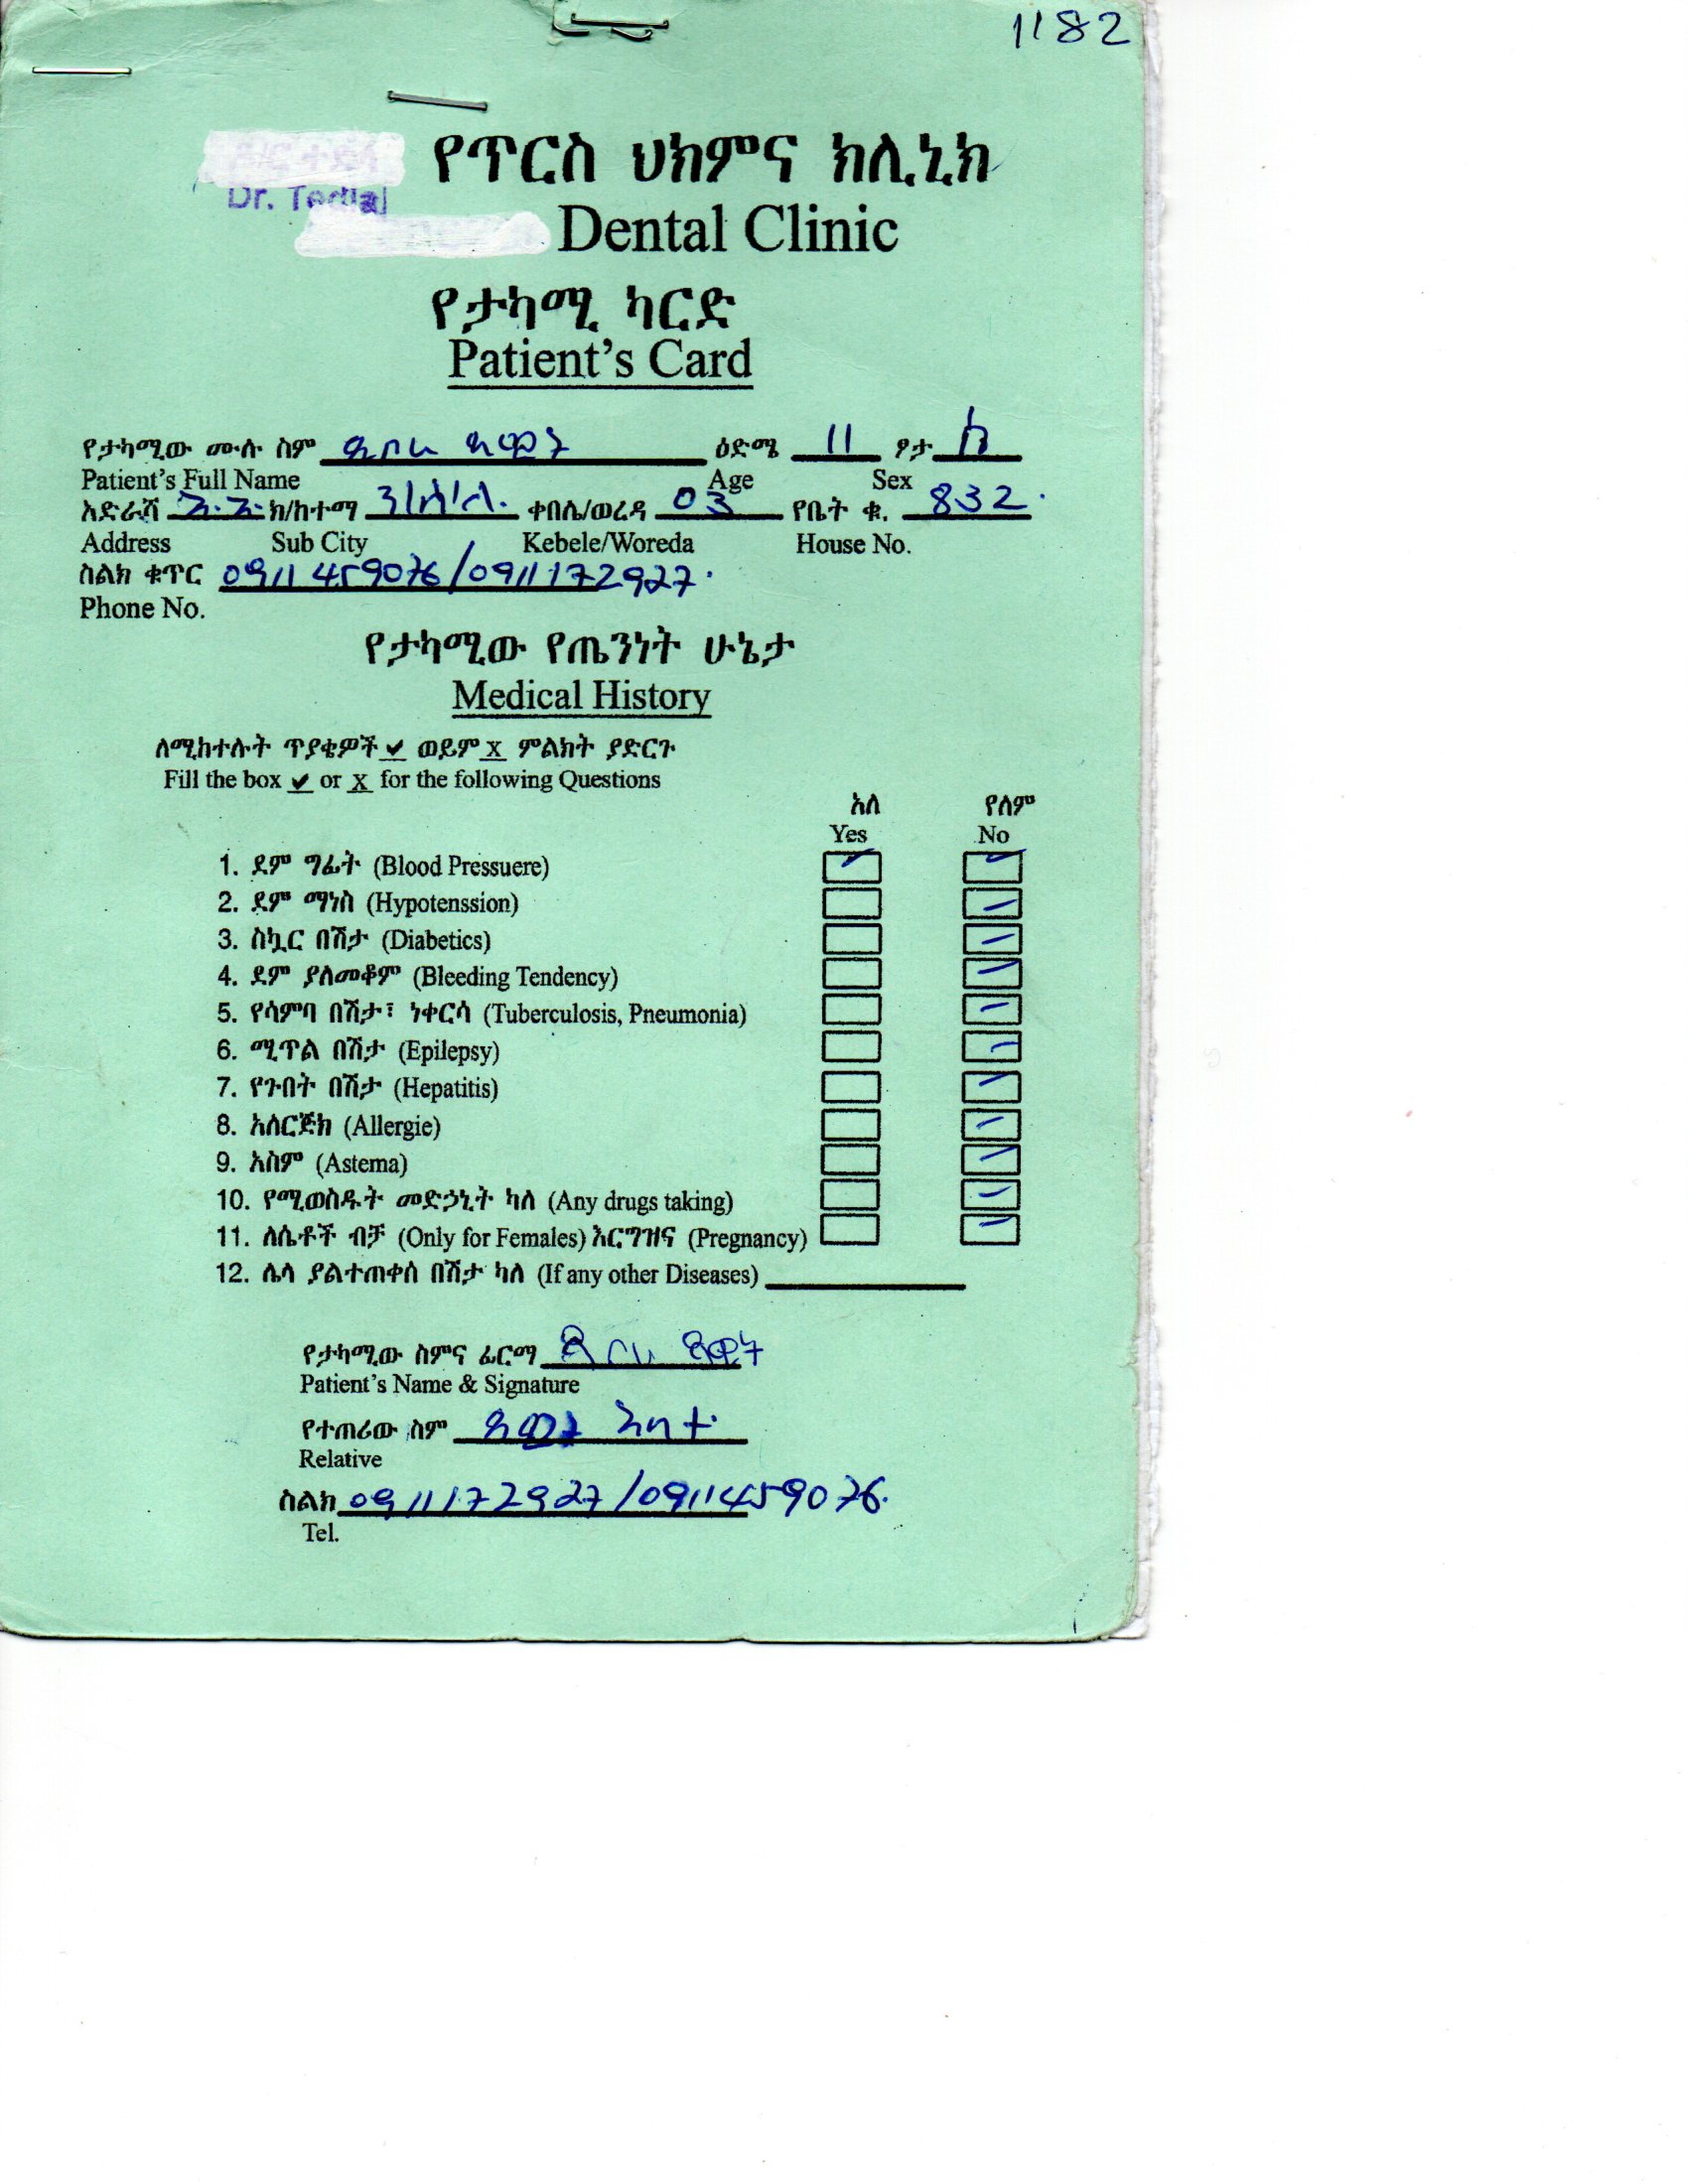 1182
የጥርስ ህክምና ክሊኒክ
Dr.
Dental Clinic
የታካሚ ካርድ
Patient's Card
የታካሚው ሙሉ ስም ዕድሜ 11 ፆታ
Patient's Full Name Age Sex
አድራሻ አ.አ. ክ/ከተማ ን/ስ/ላ. ቀበሌ/ወረዳ 03 የቤት ቁ. 832.
Address Sub City Kebele/Woreda House No.
ስልክ ቁጥር 0911 459076/0911172927.
Phone No.
የታካሚው የጤንነት ሁኔታ
Medical History
ለሚከተሉት ጥያቄዎች ✔ ወይም x ምልክት ያድርጉ
Fill the box ✔ or x for the following Questions
አለ የለም
Yes No
1. ደም ግፊት (Blood Pressuere)
2. ደም ማነስ (Hypotenssion)
3. ስኳር በሽታ (Diabetics)
4. ደም ያለመቆም (Bleeding Tendency)
5. የሳምባ በሽታ፣ ነቀርሳ (Tuberculosis, Pneumonia)
6. ሚጥል በሽታ (Epilepsy)
7. የጉበት በሽታ (Hepatitis)
8. አለርጅክ (Allergie)
9. አስም (Astema)
10. የሚወስዱት መድኃኒት ካለ (Any drugs taking)
11. ለሴቶች ብቻ (Only for Females) እርግዝና (Pregnancy)
12. ሌላ ያልተጠቀሰ በሽታ ካለ (If any other Diseases)
የታካሚው ስምና ፊርማ
Patient's Name & Signature
የተጠሪው ስም
Relative
ስልክ 0911172927/0911459076.
Tel.